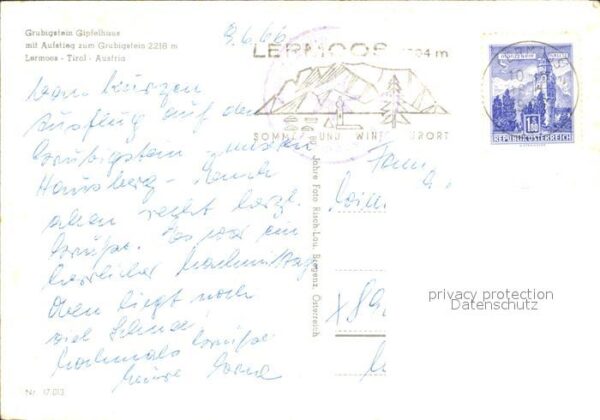 Grubigstein Gipfelhaus
mit Aufstieg zum Grubigstein 2218 m
Lermoos - Tirol - Austria
9.6.66
LERMOOS 1004 m
SOMMER UND WINTERKURORT
1.80
REPUBLIK ÖSTERREICH
vom kurzen
Ausflug auf den
Grubigstein, unseren
Hausberg - Euch
allen recht herzl.
Grüße. Es war ein
herrlicher Nachmittag
Oben liegt noch
viel Schnee
Nochmals Grüße
Fam.
Jahre Foto Risch-Lau, Bregenz, Österreich
privacy protection
Datenschutz
Nr. 17013